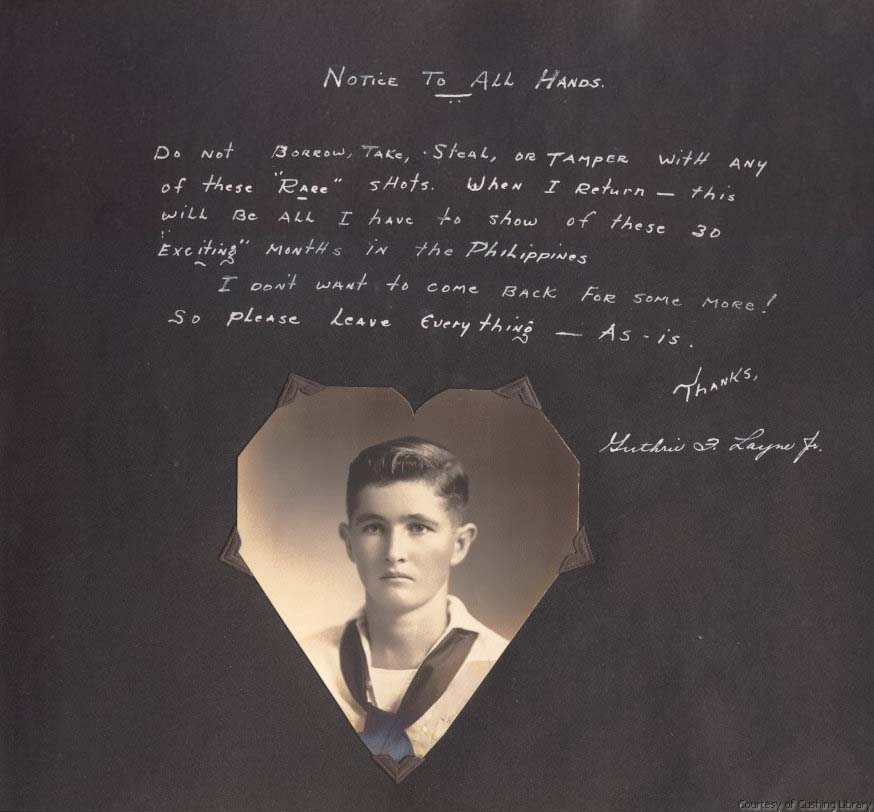 Notice To All Hands.
Do not Borrow, Take, Steal, or Tamper with any
of these "Rare" shots. When I Return — this
will Be All I have to show of these 30
"Exciting" Months in the Philippines
I don't want to come Back for some more!
So please Leave Everything — As - is.
Thanks,
Guthrie F. Layne Jr.
Courtesy of Cushing Library